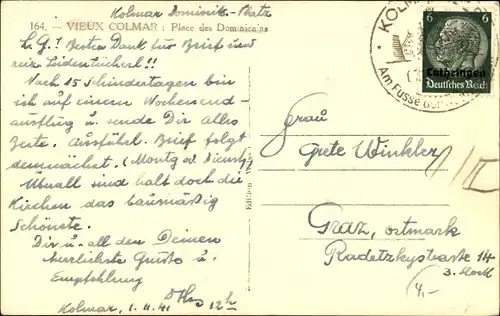 Kolmar Dominik.-Platz
164. — VIEUX COLMAR : Place des Dominicains
L.G.! Besten Dank für Brief und
reiz. Seidentücherl!!
Nach 15 Schindertagen bin
ich auf einem Wochenend-
ausflug u. sende Dir alles
Beste. Ausführl. Brief folgt
demnächst. (Montg od Dienstg)
Überall sind halt doch die
Kirchen das baumäßig
Schönste.
Dir u. all den Deinen
herzlichste Grüße u.
Empfehlung
Kolmar, 1. II. 41 12h
KOLMAR
Am Fusse der
6
Lothringen
Deutsches Reich
Edition
Frau
Grete Winkler
Graz, Ostmark
Radetzkystrasse 14
3. Stock
/II
4,-